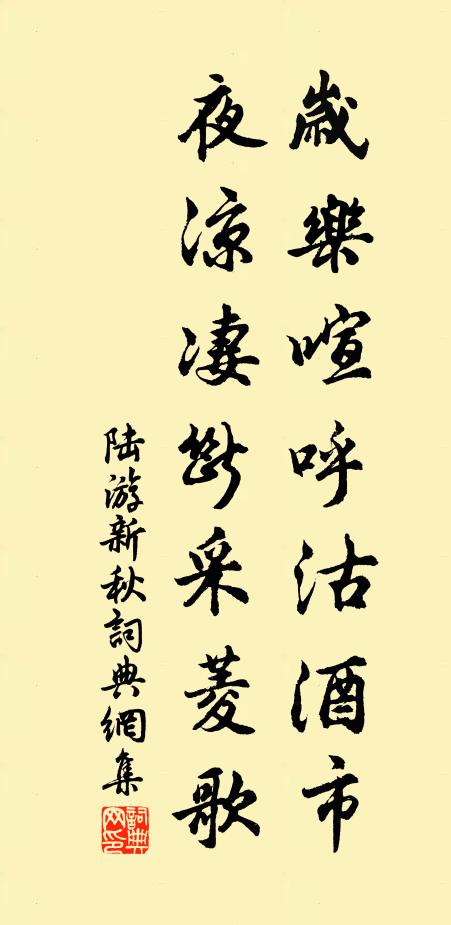 歲樂喧呼沽酒市
夜涼凄斷采菱歌
陆游新秋詞典網集
詞典網印